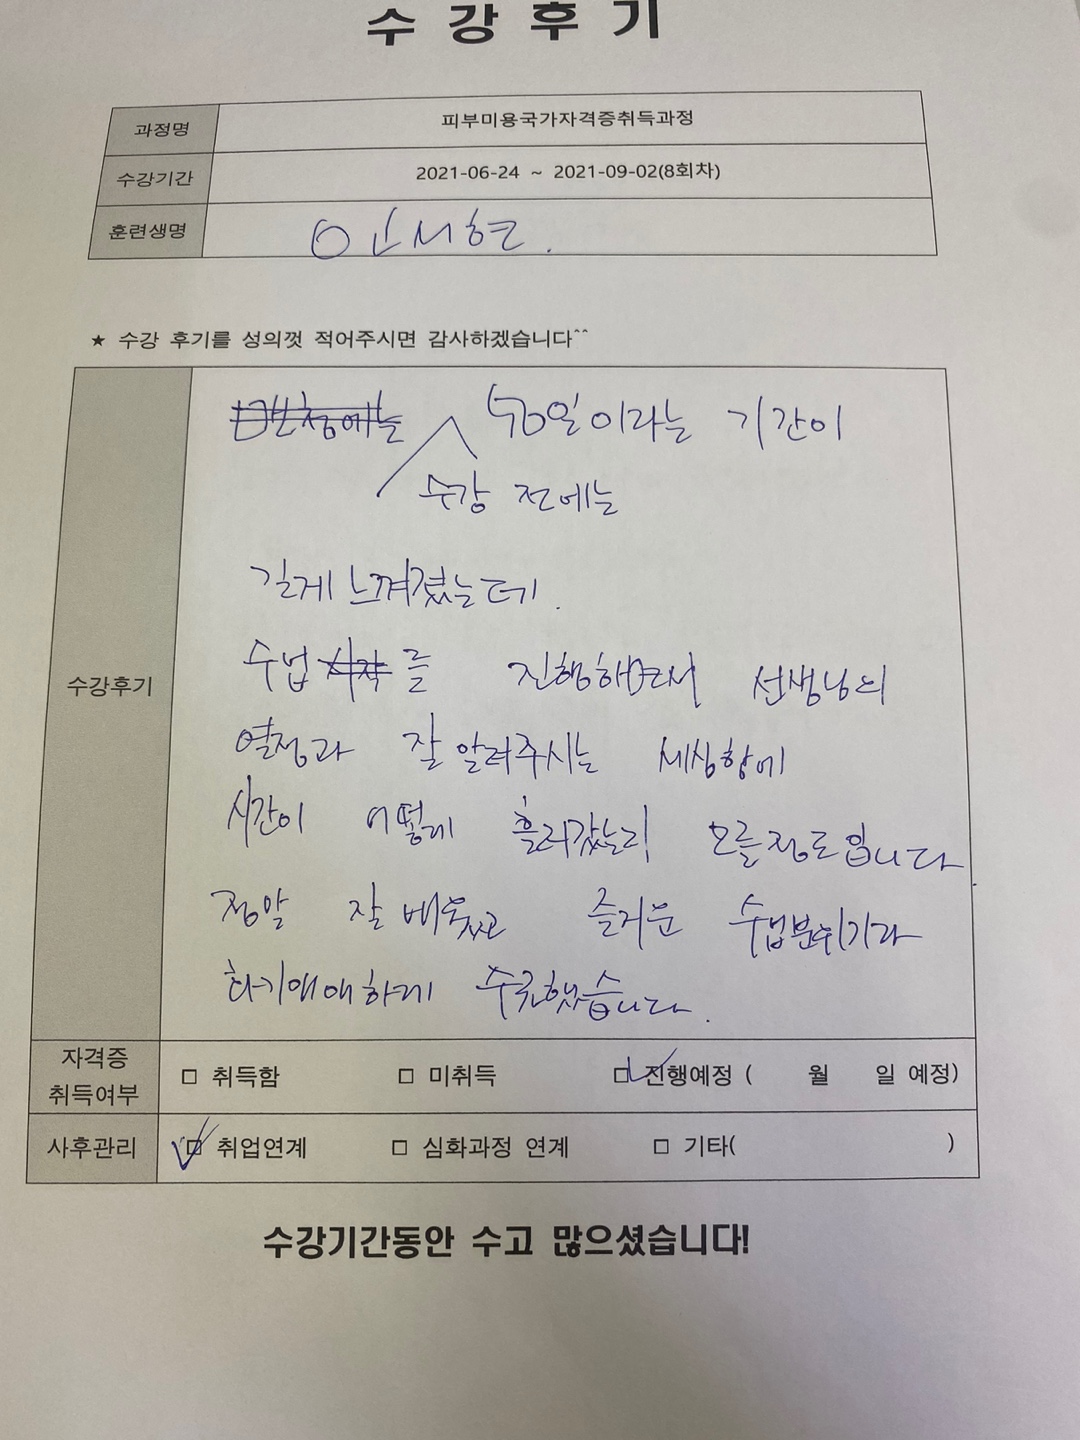 수 강 후 기
과정명 피부미용국가자격증취득과정
수강기간 2021-06-24 ~ 2021-09-02(8회차)
훈련생명 인서현.
★ 수강 후기를 성의껏 적어주시면 감사하겠습니다^^
수강후기
50일이라는 기간이
수강 전에는
길게 느껴졌는데.
수업 를 진행하면서 선생님의
열정과 잘 알려주시는 세심함에
시간이 어떻게 흘러갔는지 모를정도입니다
정말 잘 배웠고 즐거운 수업분위기라
화기애애하게 수료했습니다.
자격증 취득여부 □ 취득함 □ 미취득 □ 진행예정 ( 월 일 예정)
사후관리 □ 취업연계 □ 심화과정 연계 □ 기타( )
수강기간동안 수고 많으셨습니다!